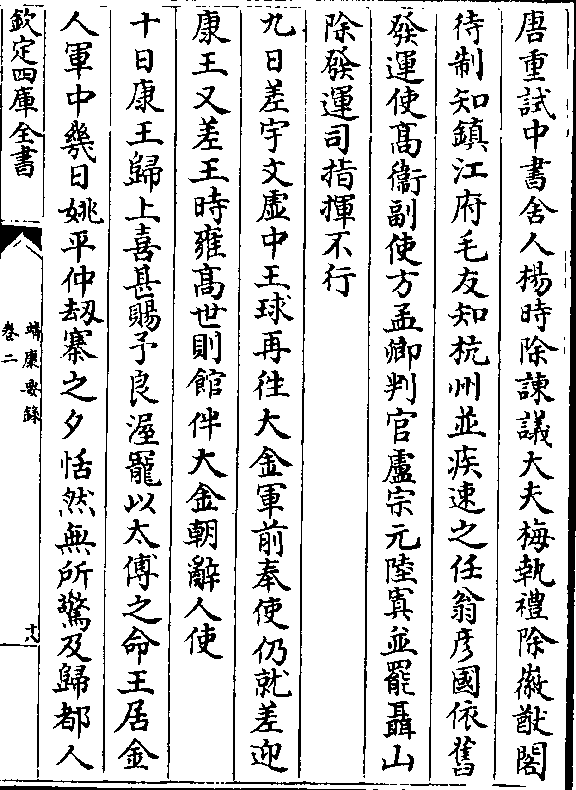 唐重試中書舍人楊時除諫議大夫梅執禮除徽猷閣
待制知鎮江府毛友知杭州並疾速之任翁彦國依舊
發運使髙衞副使方孟卿判官盧宗元陸寘並罷聶山
除發運司指揮不行
九日差宇文虛中王球再徃大金軍前奉使仍就差迎
康王又差王時雍髙世則館伴大金朝辭人使
十日康王歸上喜甚賜予良渥寵以太傅之命王居金
人軍中幾日姚平仲刼寨之夕恬然無所驚及歸都人
欽定四庫全書
靖康要錄
卷二
十八